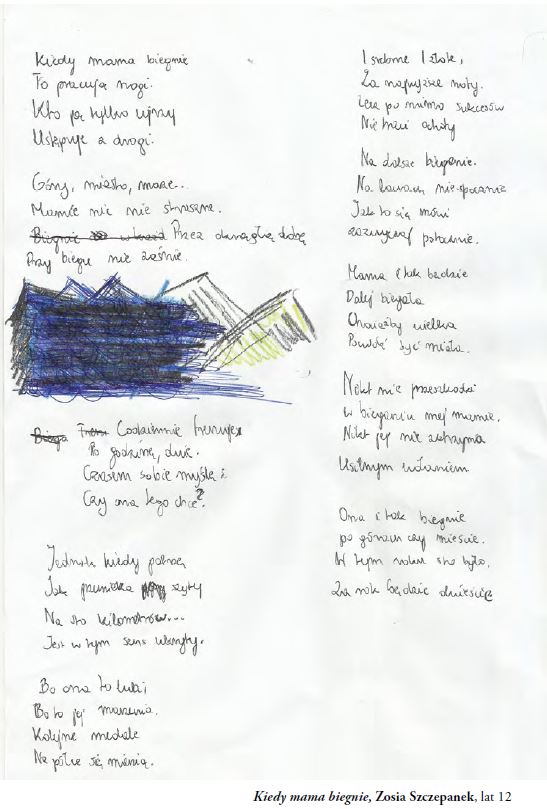 Kiedy mama biegnie
To pracują nogi.
Kto ją tylko ujrzy
Ustępuje z drogi.
Góry, miasto, morze...
Mamie nic nie straszne.
Biegnie Przez okrągłą dobę
Przy biegu nie zaśnie.
Codziennie trenuje
Po godzinę, dwie.
Czasem sobie myślę:
Czy ona tego chce?
Jednak kiedy patrzę
Jak szyty
Na sto kilometrów...
Jest w tym sens ukryty.
Bo ona to lubi,
Bo to jej marzenia.
Kolejne medale
Na półce się mienią.
I srebrne i złote,
Za najwyższe noty.
Lecz po mimo sukcesów
Nie traci ochoty
Na dalsze bieganie.
Na
Jak to się mówi
Mama i tak będzie
Dalej biegała
Chociażby wielka
być miała.
Nikt nie przeszkodzi
w bieganiu mej mamie.
Nikt jej nie zatrzyma
Usilnym wołaniem
Ona i tak biegnie
po górach czy mieście.
W tym roku sto było,
Za rok będzie dwieście
Kiedy mama biegnie, Zosia Szczepanek, lat 12